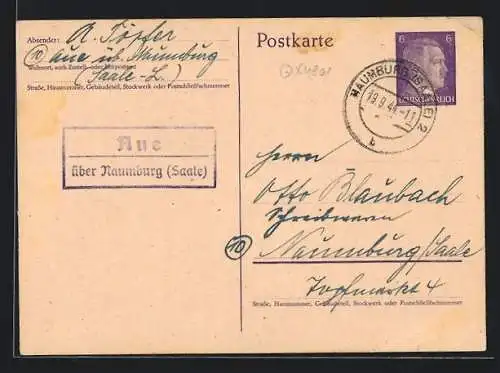 Absender: A. Töpfer
(10) Aue üb. Naumburg
Wohnort, auch Zustell- oder Leitpostamt
(Saale-L.)
Straße, Hausnummer, Gebäudeteil, Stockwerk oder Postschließfachnummer
Aue
über Naumburg (Saale)
Postkarte
6 6
DEUTSCHES REICH
NAUMBURG (SAALE) 2
19.9.44.-11
b
Herrn
Otto Blaubach
Schreibwaren
(10) Naumburg/Saale
Topfmarkt 4
Straße, Hausnummer, Gebäudeteil, Stockwerk oder Postschließfachnummer